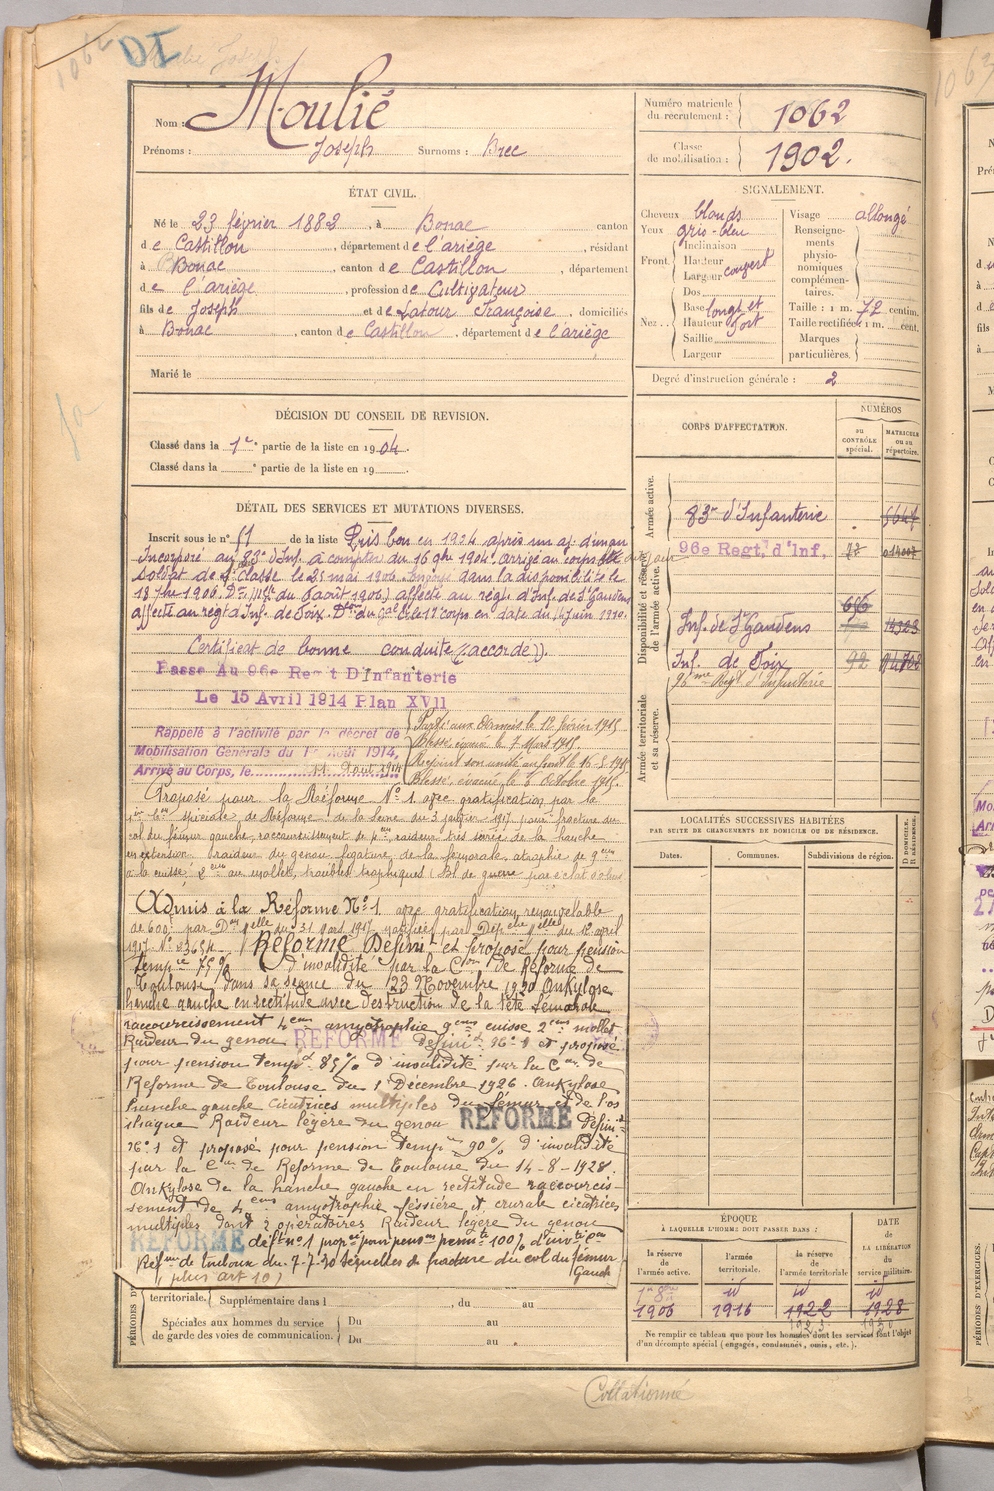 1062
DI
Nom : Moulié
Prénoms : Joseph Surnoms : Bree
Numéro matricule du recrutement : 1062
Classe de mobilisation : 1902.
ÉTAT CIVIL.
Né le 23 février 1882, à Bonac canton
de Castillon, département de l'ariège, résidant
à Bonac, canton de Castillon, département
de l'ariège, profession de Cultivateur
fils de Joseph et de Latour Françoise, domiciliés
à Bonac, canton de Castillon, département de l'ariège
Marié le
SIGNALEMENT.
Cheveux blonds
Yeux gris-bleu
Front Inclinaison
Hauteur
Largeur couvert
Nez Dos
Base long et
Hauteur fort
Saillie
Largeur
Visage allongé
Renseignements physionomiques complémentaires.
Taille : 1 m. 72 centim.
Taille rectifiée : 1 m. cent.
Marques particulières.
Degré d'instruction générale : 2
DÉCISION DU CONSEIL DE REVISION.
Classé dans la 1re partie de la liste en 1904.
Classé dans la e partie de la liste en 19
DÉTAIL DES SERVICES ET MUTATIONS DIVERSES.
Inscrit sous le n° 51 de la liste Pris bon en 1904 après un aj. d'un an
Incorporé au 83e d'Inf. à compter du 16 9bre 1904. arrivé au corps dudit jour
soldat de 2e classe le 25 mai 1906. dans la disponibilité le
affecté au régt d'Inf. de St Gaudens
affecté au régt d'Inf. de Foix. du Gal Ct le 17e corps en date du juin 1910.
Certificat de bonne conduite "accordé".
Passe Au 96e Regt D'Infanterie
Le 15 Avril 1914 Plan XVII
Rappelé à l'activité par le décret de
Mobilisation Générale du 1er Août 1914,
Arrivé au Corps, le 11 Aout 1914
Parti aux Armées le 12 février 1915
Blessé, évacué le 7 Mars 1915.
Rejoint son unité au front le 16-5-1915
Blessé, évacué le 6 octobre 1915.
Proposé pour la Réforme N° 1 avec gratification par la
Con spéciale de Réforme de la Seine du 3 janvier 1917 pour fracture du
col du fémur gauche, raccourcissement de raideur très serrée de la hanche
en extension. Raideur du genou ligature de la fémorale atrophie de 9cm
à la cuisse, 2cm au mollet, troubles trophiques (Bl de guerre par éclat d'obus
Admis à la Réforme N° 1 avec gratification renouvelable
de 600f par Don du 31 Mars 1917 notifiée par Dépêche du 12 avril
1917 N° 23654. Réformé Définit et proposé pour pension
tempre 75% d'invalidité par la Con de Réforme de
Toulouse dans sa séance du 23 Novembre 1920 Ankylose
hanche gauche en rectitude avec destruction de la tête fémorale
raccourcissement 4cm amyotrophie 9cm cuisse 2cm mollet
Raideur du genou RÉFORMÉ définit N° 1 et proposé
pour pension temp 85% d'invalidité par la Con de
Réforme de Toulouse du 1 Décembre 1926. Ankylose
hanche gauche cicatrices multiples du fémur et de l'os
iliaque Raideur légère du genou RÉFORMÉ définit
N° 1 et proposé pour pension temp 90% d'invalidité
par la Con de Réforme de Toulouse du 14-8-1928.
Ankylose de la hanche gauche en rectitude raccourcis-
sement de 4cm amyotrophie fessière et crurale cicatrices
multiples dont 2 opératoires Raideur légère du genou
RÉFORMÉ déft n° 1 propé pour pension permte 100% d'invté Con
Réfme de Toulouse du 7-7-30 séquelles de fracture du col du fémur
Gauche
(plus art 10)
CORPS D'AFFECTATION.
NUMÉROS
au CONTRÔLE spécial.
MATRICULE ou au répertoire.
Armée active.
83e d'Infanterie 5647
96e Regt. d'Inf, 78 014007
Disponibilité et réserve de l'armée active.
Inf. de St Gaudens 14323
Inf. de Foix 92
96me Régt d'Infanterie
Armée territoriale et sa réserve.
LOCALITÉS SUCCESSIVES HABITÉES
PAR SUITE DE CHANGEMENTS DE DOMICILE OU DE RÉSIDENCE.
Dates. Communes. Subdivisions de région.
D DOMICILE. R RÉSIDENCE.
ÉPOQUE
À LAQUELLE L'HOMME DOIT PASSER DANS :
la réserve de l'armée active. l'armée territoriale. la réserve de l'armée territoriale
DATE DE LA LIBÉRATION du service militaire.
1er 8bre id id id
1906 1916 1922 1928
Ne remplir ce tableau que pour les hommes dont les services font l'objet
d'un décompte spécial (engagés, condamnés, omis, etc.).
PÉRIODES D'
territoriale. Supplémentaire dans l , du au
Spéciales aux hommes du service de garde des voies de communication. Du au
Du au
Collationné
PÉRIODES D'EXERCICES.